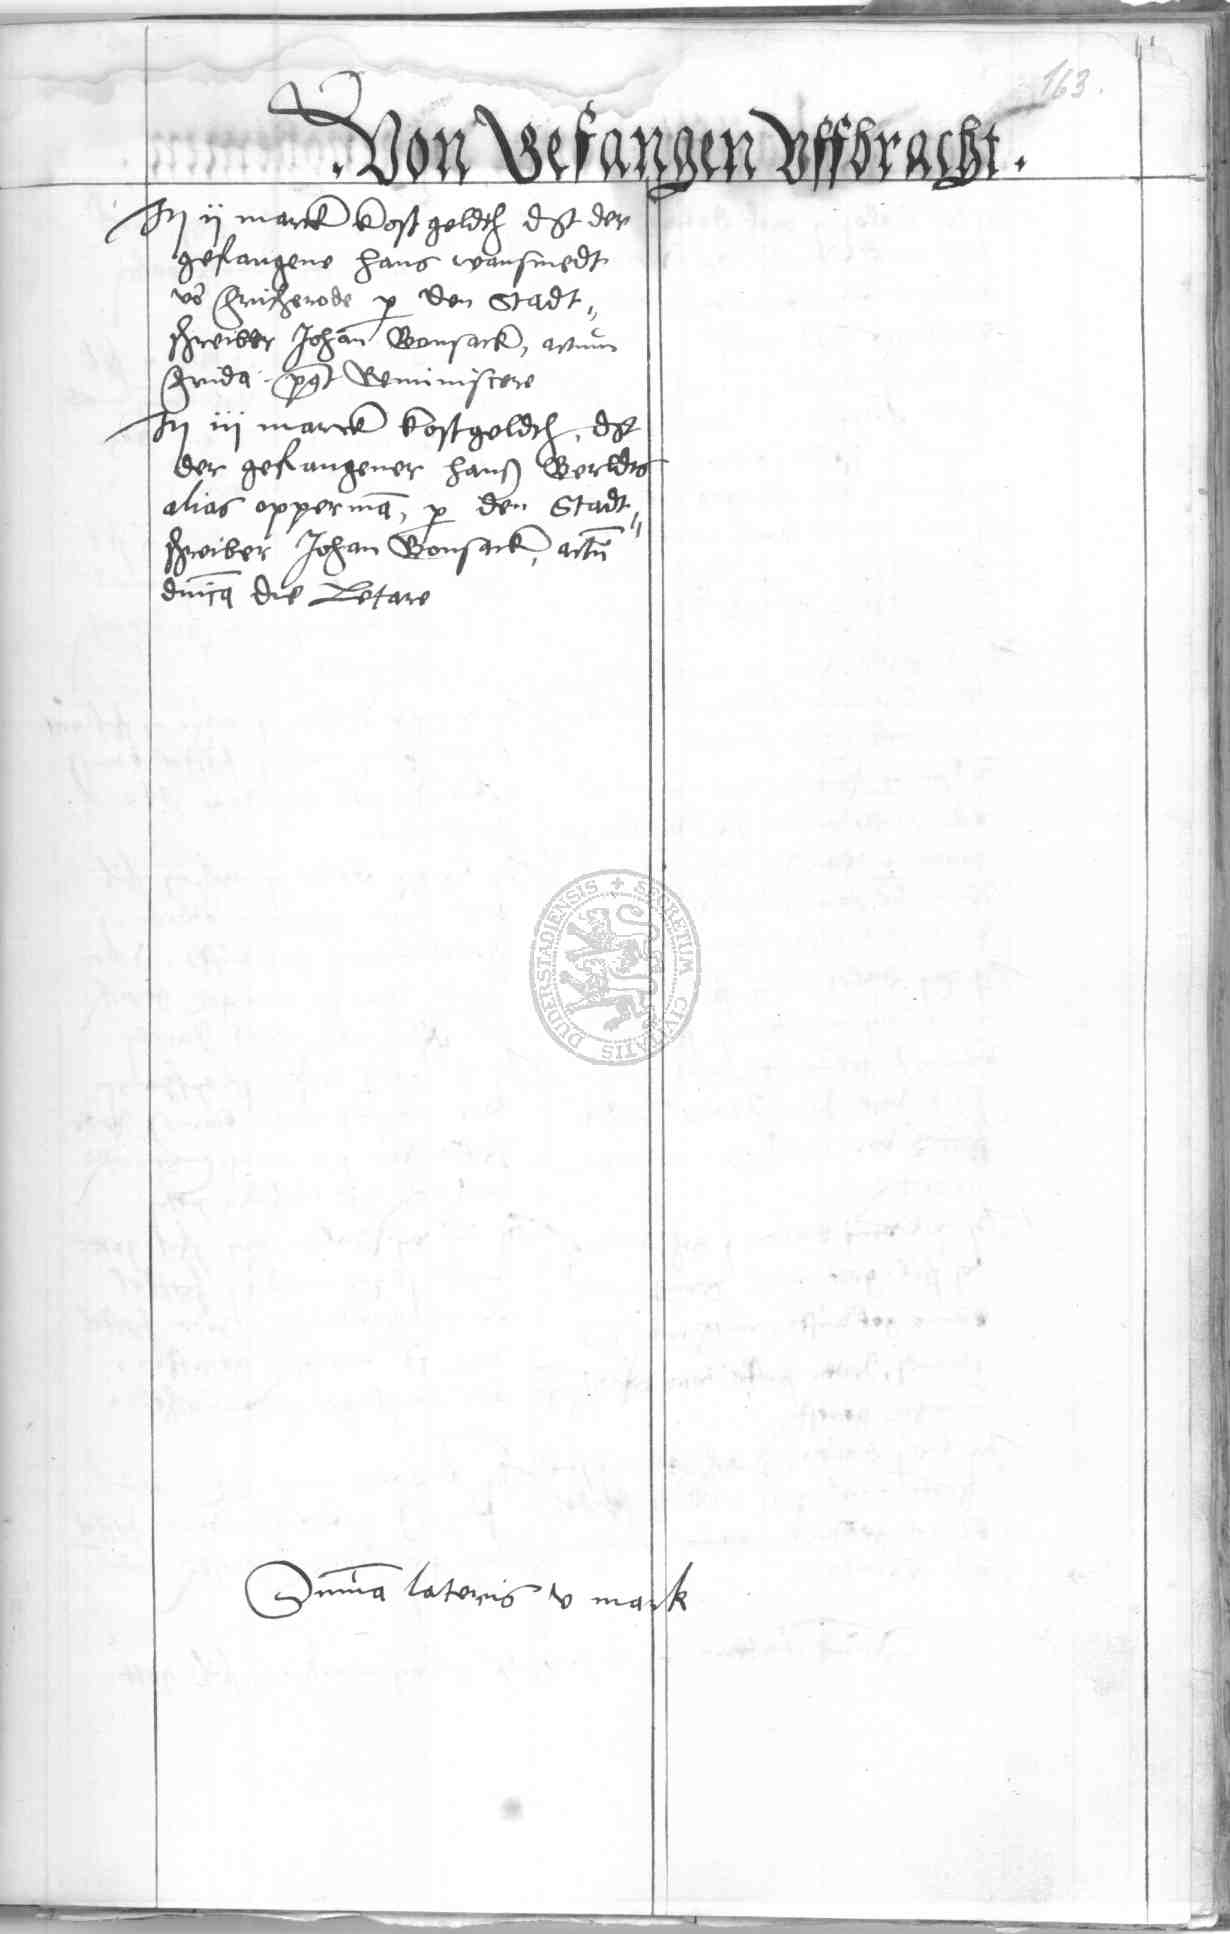 163.
. Von Gefangen Uffbracht .
It ij marck kost geldeß dȝt der
gefangene hans wansmedt
vs̄ p den Stadt„
schreiber Johan̄ Bonsack, actum
p9t Reminiscere
It iij marck kostgeldeß, dȝt
der gefangener hanß Berldes
alias opperma͞, p den Stadt„
schreiber Johan Bonsack, actu͞
dn͞ica die Letare
Sum͞a lateris v mark
SECRETUM CIVITATIS DUDERSTADIENSIS +